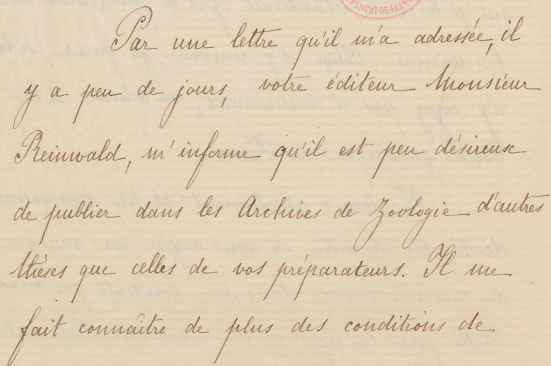 INSTITUT DE FRANCE
Par une lettre qu'il m'a adressée, il
y a peu de jours, votre éditeur Monsieur
Reinwald, m'informe qu'il est peu désireux
de publier dans les Archives de Zoologie d'autres
thèses que celles de vos préparateurs. Il me
fait connaître de plus des conditions de